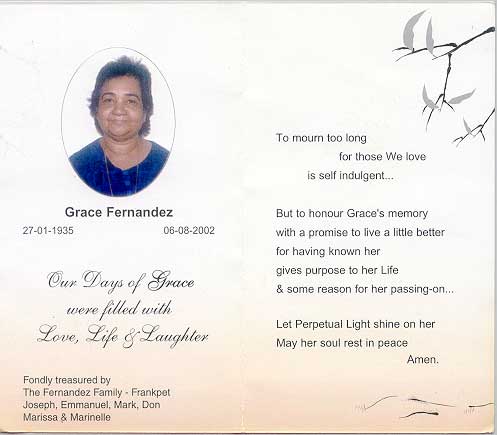 Grace Fernandez
27-01-1935 06-08-2002
Our Days of Grace
were filled with
Love, Life & Laughter
Fondly treasured by
The Fernandez Family - Frankpet
Joseph, Emmanuel, Mark, Don
Marissa & Marinelle
To mourn too long
for those We love
is self indulgent...
But to honour Grace's memory
with a promise to live a little better
for having known her
gives purpose to her Life
& some reason for her passing-on...
Let Perpetual Light shine on her
May her soul rest in peace
Amen.